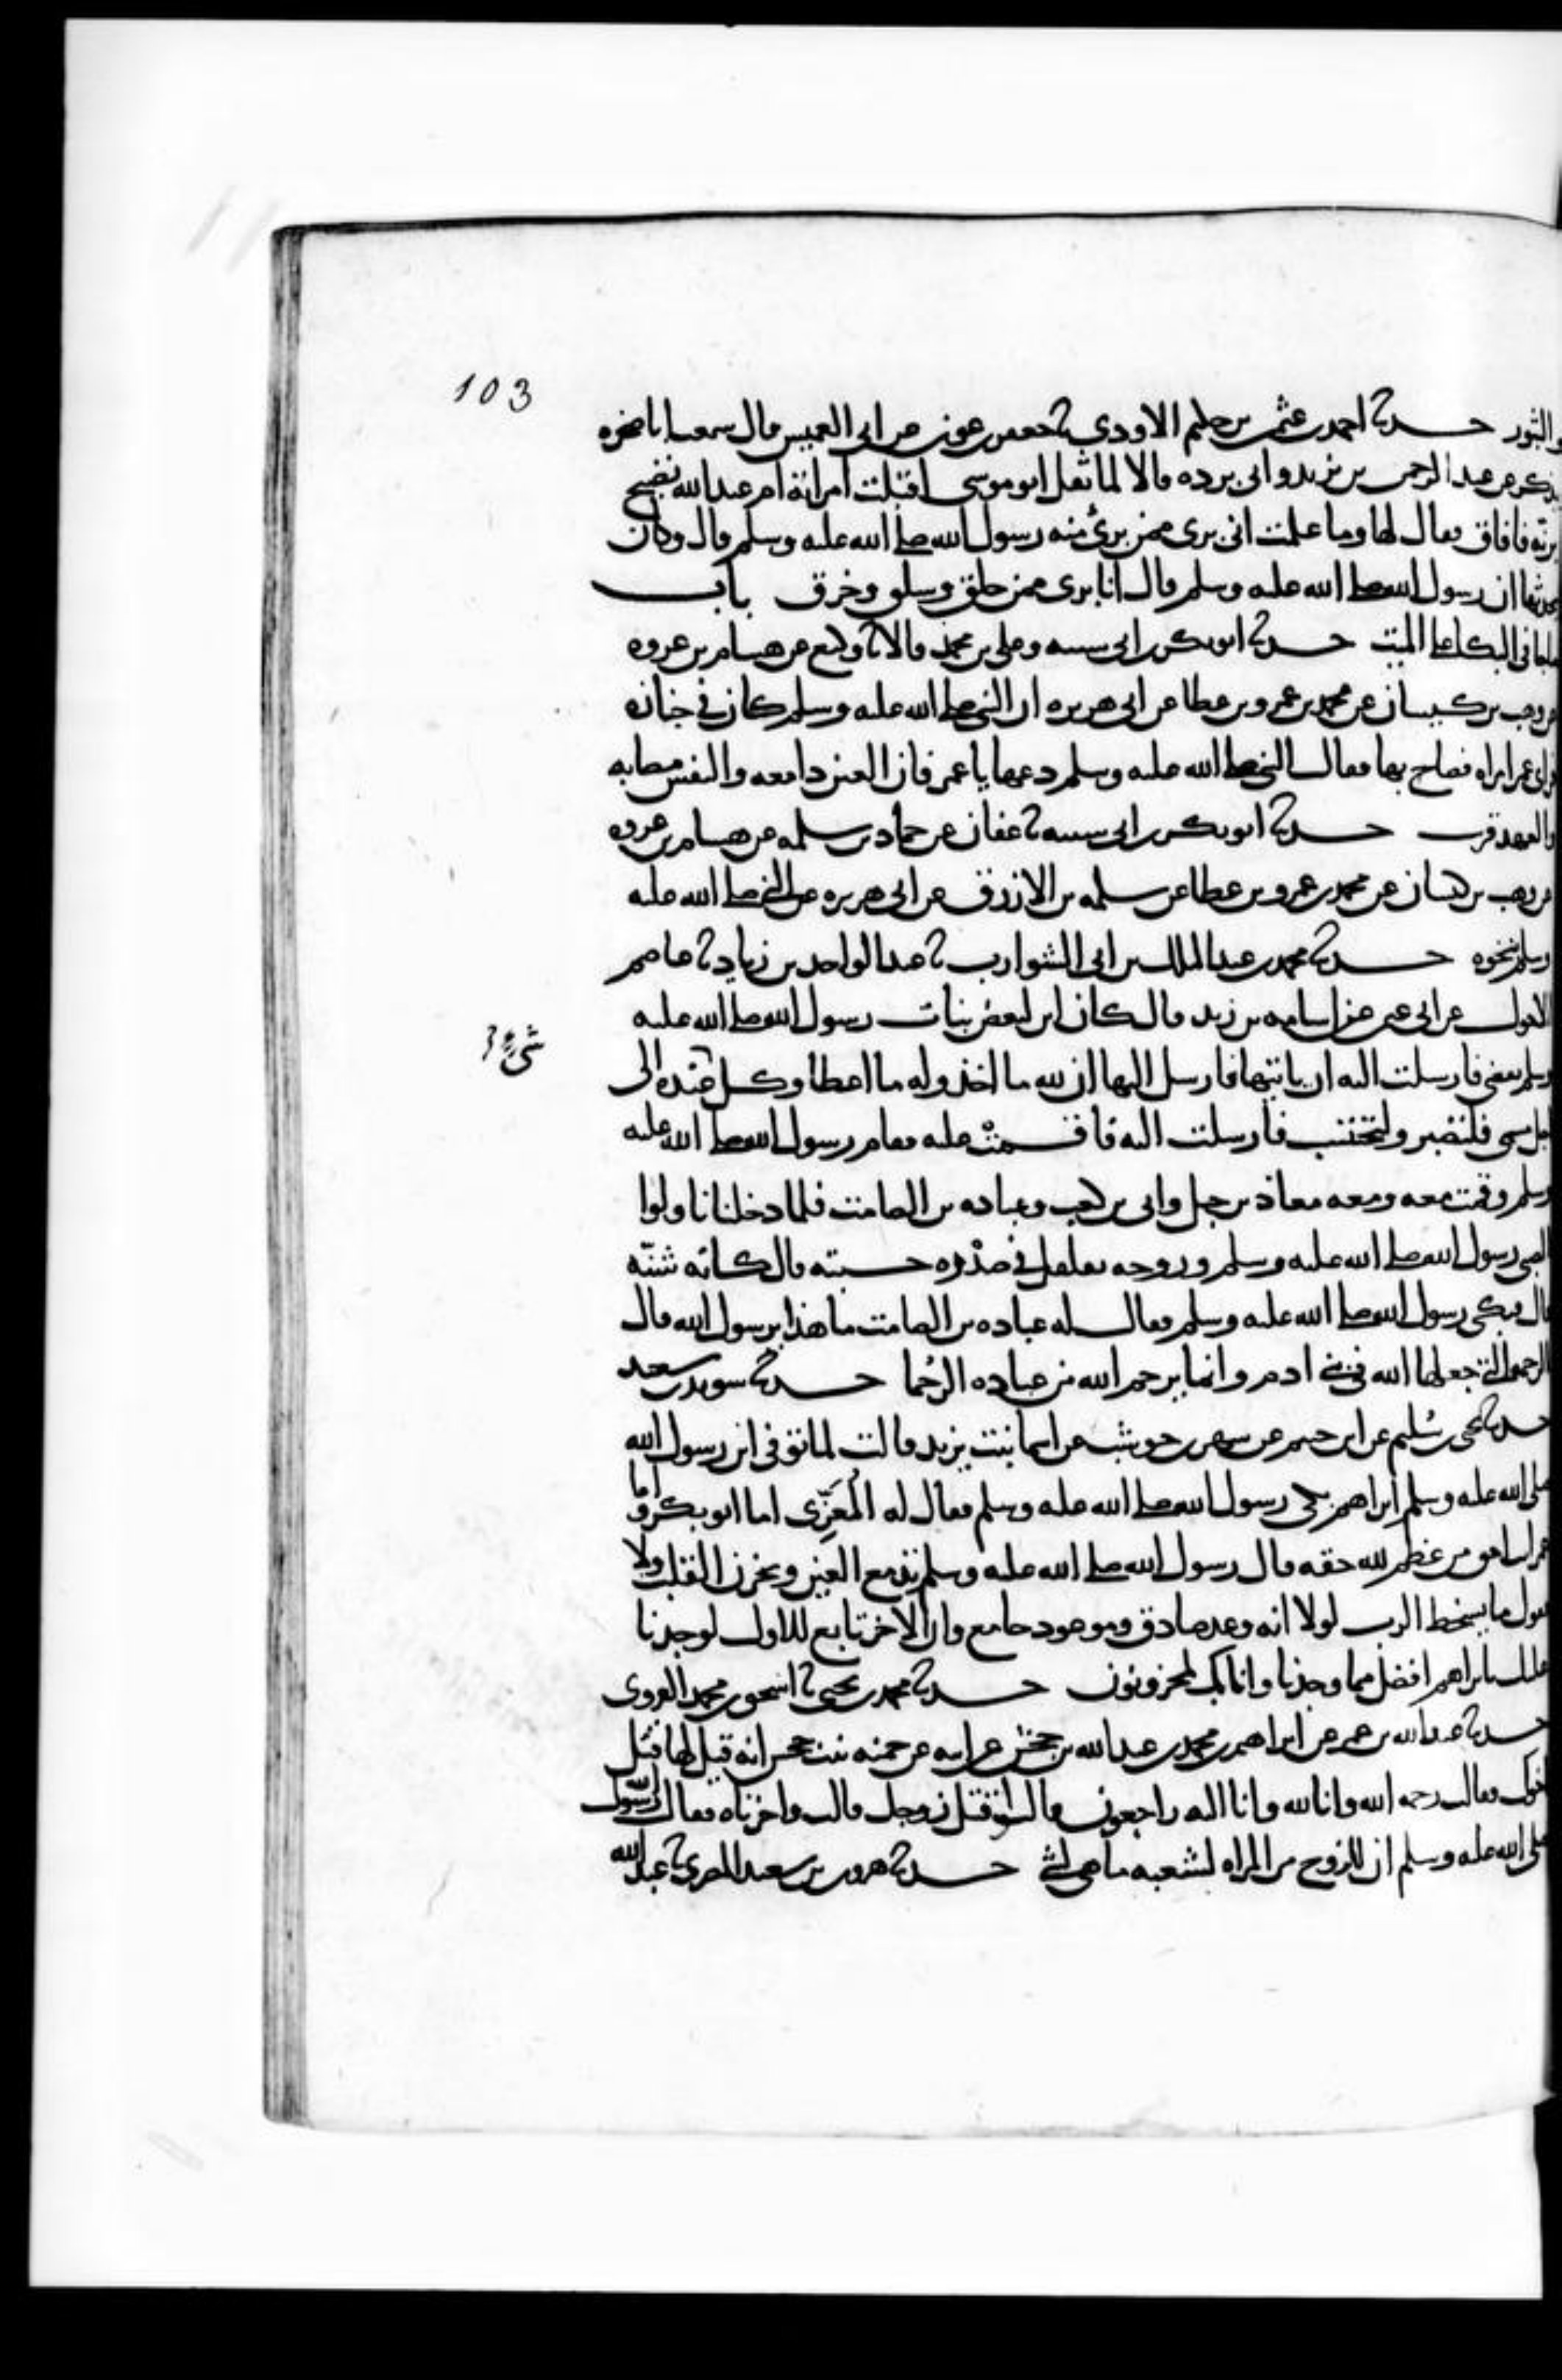 103
والثبور حدثنا احمد بن عثمن بن حكيم الاودي ثنا جعفر بن عون عن ابى العميس قال سمعت ابا صخره
يذكر عن عبد الرحمن بن يزيد وابى برده قالا لما ثقل ابو موسى اقبلت امراته ام عبد الله تصيح
برنة فافاق فقال لها وما علمت انى برى ممن برئ منه رسول الله صلى الله عليه وسلم قال وكان
يحدثها ان رسول الله صلى الله عليه وسلم قال انا برى ممن حلق وسلق وخرق باب
ما جا فى البكا على الميت حدثنا ابو بكر بن ابى شيبه وعلى بن محمد قالا ثنا وكيع عن هشام بن عروه
عن وهب بن كيسان عن محمد بن عمرو بن عطا عن ابى هريره ان النبى صلى الله عليه وسلم كان فى جنازه
فراى عمر امراه فصاح بها فقال النبى صلى الله عليه وسلم دعها يا عمر فان العين دامعه والنفس مصابه
والعهد قريب حدثنا ابو بكر بن ابى شيبه ثنا عفان عن حماد بن سلمه عن هشام بن عروه
عن وهب بن كيسان عن محمد بن عمرو بن عطا عن سلمه بن الازرق عن ابى هريره عن النبى صلى الله عليه
وسلم بنحوه حدثنا محمد بن عبد الملك بن ابى الشوارب ثنا عبد الواحد بن زياد ثنا عاصم
الاحول عن ابى عثمن عن اسامه بن زيد قال كان ابن لبعض بنات رسول الله صلى الله عليه
وسلم يقضى فارسلت اليه ان ياتيها فارسل اليها ان لله ما اخذ وله ما اعطا وكل عنده الى
شىء
اجل مسمى فلتصبر ولتحتسب فارسلت اليه فاقسمت عليه فقام رسول الله صلى الله عليه
وسلم وقمت معه ومعه معاذ بن جبل وابى بن كعب وعباده بن الصامت فلما دخلنا ناولوا
الصبى رسول الله صلى الله عليه وسلم وروحه تقلقل فى صدره حسبته قال كانه شنة
قال فبكى رسول الله صلى الله عليه وسلم فقال له عباده بن الصامت ما هذا يرسول الله قال
الرحمة التى جعلها الله فى بنى ادم وانما يرحم الله من عباده الرحما حدثنا سويد بن سعيد
حدثنا يحى بن سليم عن ابن خثيم عن شهر بن حوشب عن اسما بنت يزيد قالت لما توفى ابن رسول الله
صلى الله عليه وسلم ابراهيم بكى رسول الله صلى الله عليه وسلم فقال له المعزى اما ابو بكر واما
عمر انت احق من عظم لله حقه قال رسول الله صلى الله عليه وسلم تدمع العين ويحزن القلب ولا
نقول ما يسخط الرب لولا انه وعد صادق وموعود جامع وان الاخر تابع للاول لوجدنا
عليك يا ابراهيم افضل مما وجدنا وانا بك لمحزونون حدثنا محمد بن يحيى ثنا اسحق بن محمد الفروى
حدثنا عبد الله بن عمر عن ابراهيم بن محمد بن عبد الله بن جحش عن ابيه عن حمنه بنت جحش انه قيل لها قتل
اخوك فقالت رحمه الله وانا لله وانا اليه راجعون قالوا قتل زوجك قالت واحزناه فقال رسول الله
صلى الله عليه وسلم ان للزوج من المراه لشعبه ما هى لشى حدثنا هرون بن سعيد المصرى ثنا عبد الله